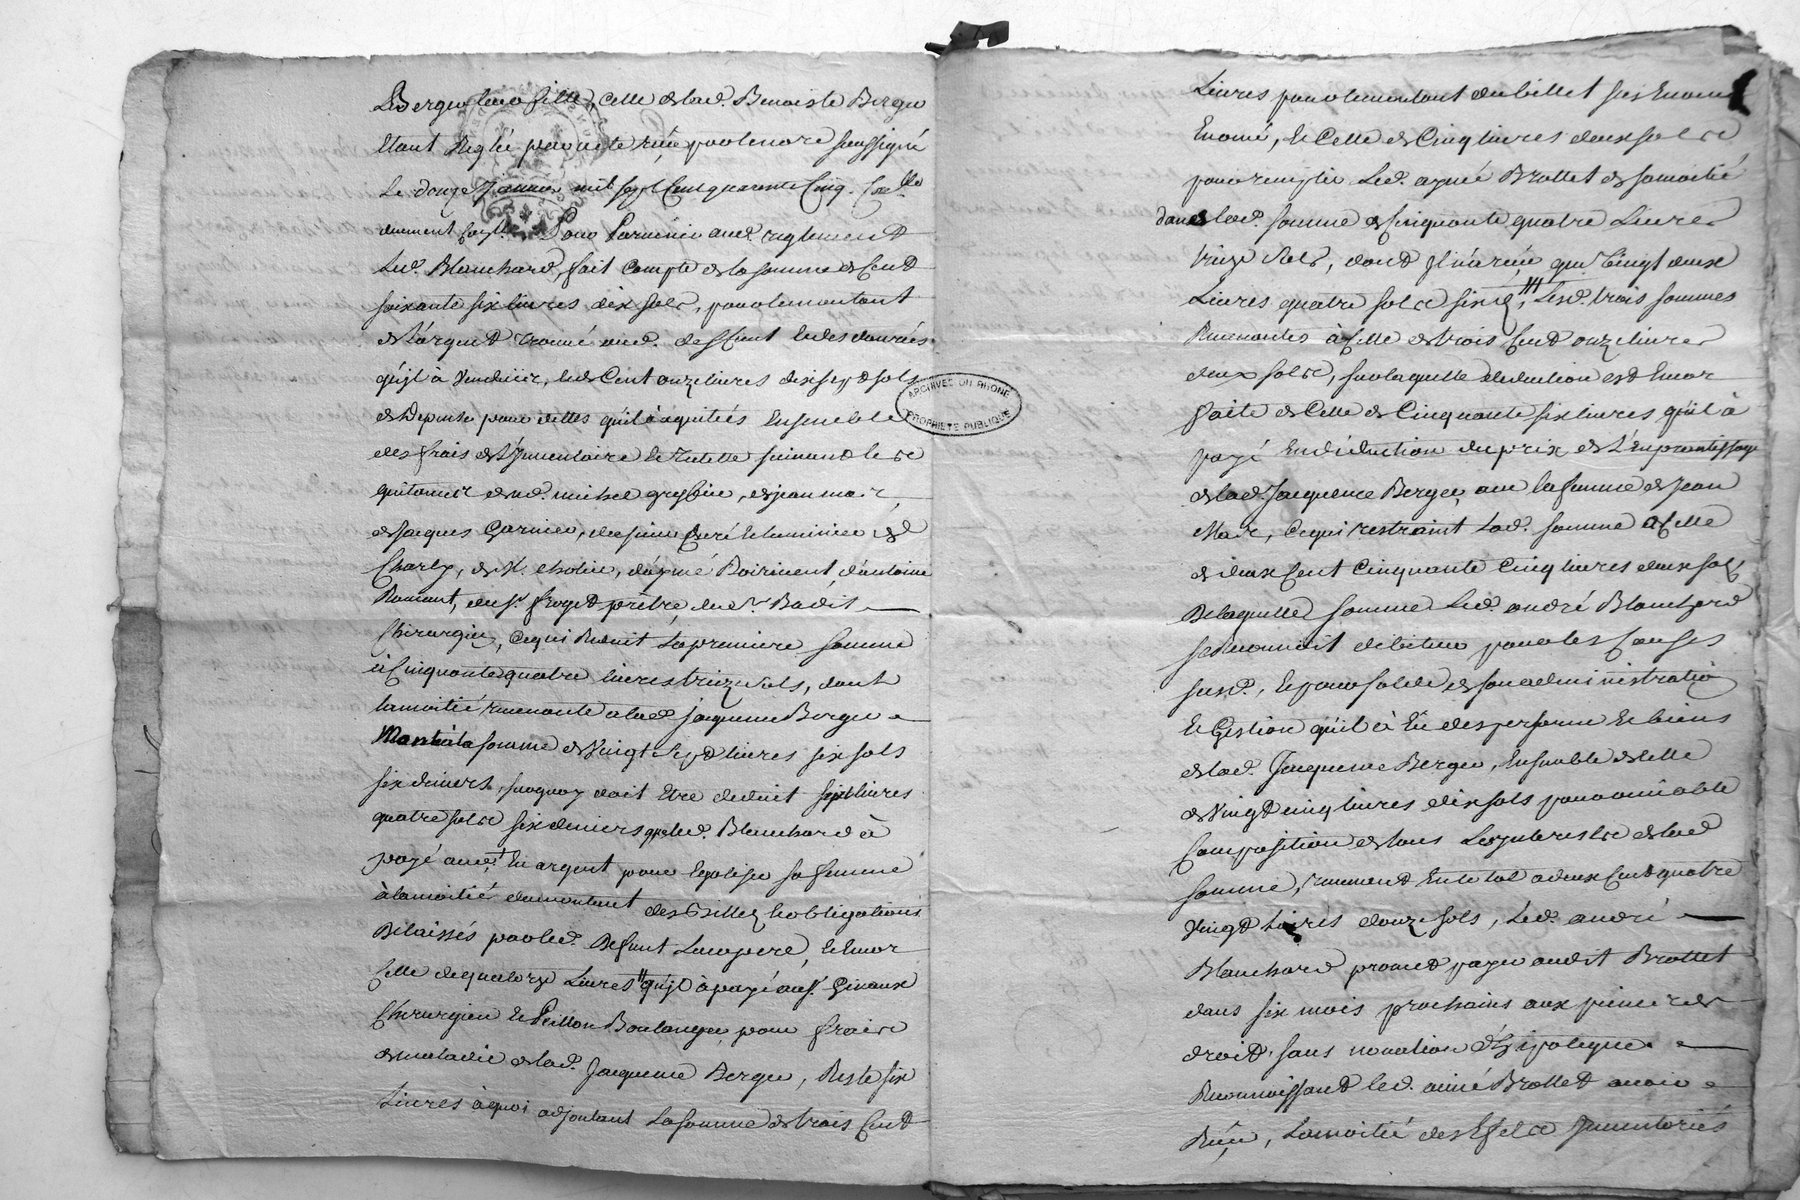 Berger leur fille, celle de lad. Benoiste Berger
Etant Reglée par acte reçu par le nore soussigné
Le douze Janvier mil sept Cent quarante Cinq. Con.lle
duement Exp.
Pour parvenir aud. reglement
Led. Blanchard, fait Compte de la somme de Cent
soixante six livres dix sols, pour le montant
de L'argent trouvé aud. deffunt les denrées
qu'il à Vendües, les Cent onze livres dix sept sols
de Depense pour dettes qu'il à aquitées Ensemble
des frais de L'Inventaire de Tutelle suivant les
quitances de md. michel, de jean mair,
de Jacques Garnier, des sieurs Curé et luminier de
Charly, de Aymé Poirieux d'antoine
Romant, du sr. froget prêtre, du sr. Badis
Chirurgien, Cequi Reduit la premiere somme
à Cinquante quatre livres treize sols, dont
la moitié revenante a lad. jacqueme Berger
Monte à la somme de Vingt sept livres six sols
six deniers, surquoy doit Etre deduit sept livres
quatre sols six deniers que led. Blanchard à
payé aud. En argent pour sa femme
à la moitié du montant des Billets et obligations
Delaissés par led. Defunt Leur pere, et Encor
Celle de quatorze Livres qu'il à payé aux srs. Giraux
Chirurgien et Peillon Boulanger pour frais
de maladie de lad. Jacqueme Berger, Reste six
Livres à quoi adjoutant La somme de trois Cent
Livres pour le montant du billet sus Enoncé
Enoncé, et Celle de Cinq livres deux sols
pour remplir Led. aymé Brottet de sa moitié
dans lad. somme de Cinquante quatre Livres
treize sols, dont Il n'à reçu que Vingt deux
Livres quatre sols six d., Lesd. trois sommes
Revenantes à Celle de trois Cent onze livres
deux sols, sur laquelle deduction est Encor
faite de Celle de Cinquante six livres qu'il à
payé En deduction du prix de L'Enprantissage
de lad. Jacqueme Berger, avec la femme de Jean
Mair, Cequi restraint Lad. somme a Celle
de deux Cent Cinquante Cinq livres deux sols
De laquelle somme Led. andré Blanchard
se Reconnoit debiteur pour les Causes
susd., et pour solde de son administration
et Gestion qu'il à Eu des personne et biens
de lad. Jacqueme Berger, Ensemble de Celle
de Vingt cinq livres dix sols pour amiable
Composition de tous Les interests de lad.
somme, revenant En total a deux Cent quatre
Vingt livres douze sols, Led. andré
Blanchard promet payer audit Brottet
dans six mois prochains aux peines de
droit, sans novation d'hipoteque.
Reconnoissant led. aimé Brottet avoir
Reçu, La moitié des Effets Inventoriés
ARCHIVES DU RHONE
PROPRIETE PUBLIQUE